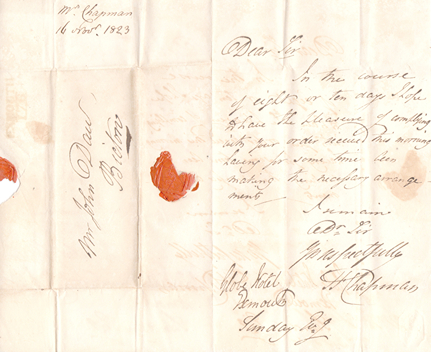 Mr. Chapman
16 Novr. 1823
Mr John Daw
Dear Sir
In the course
of eight or ten days I hope
to have the pleasure of complying
with your order received this morning
having for some time been
making the necessary arrange
ments
I remain
Dr. Sir
Yrs respectfully
H Chapman
Globe Hotel
Sunday Evg